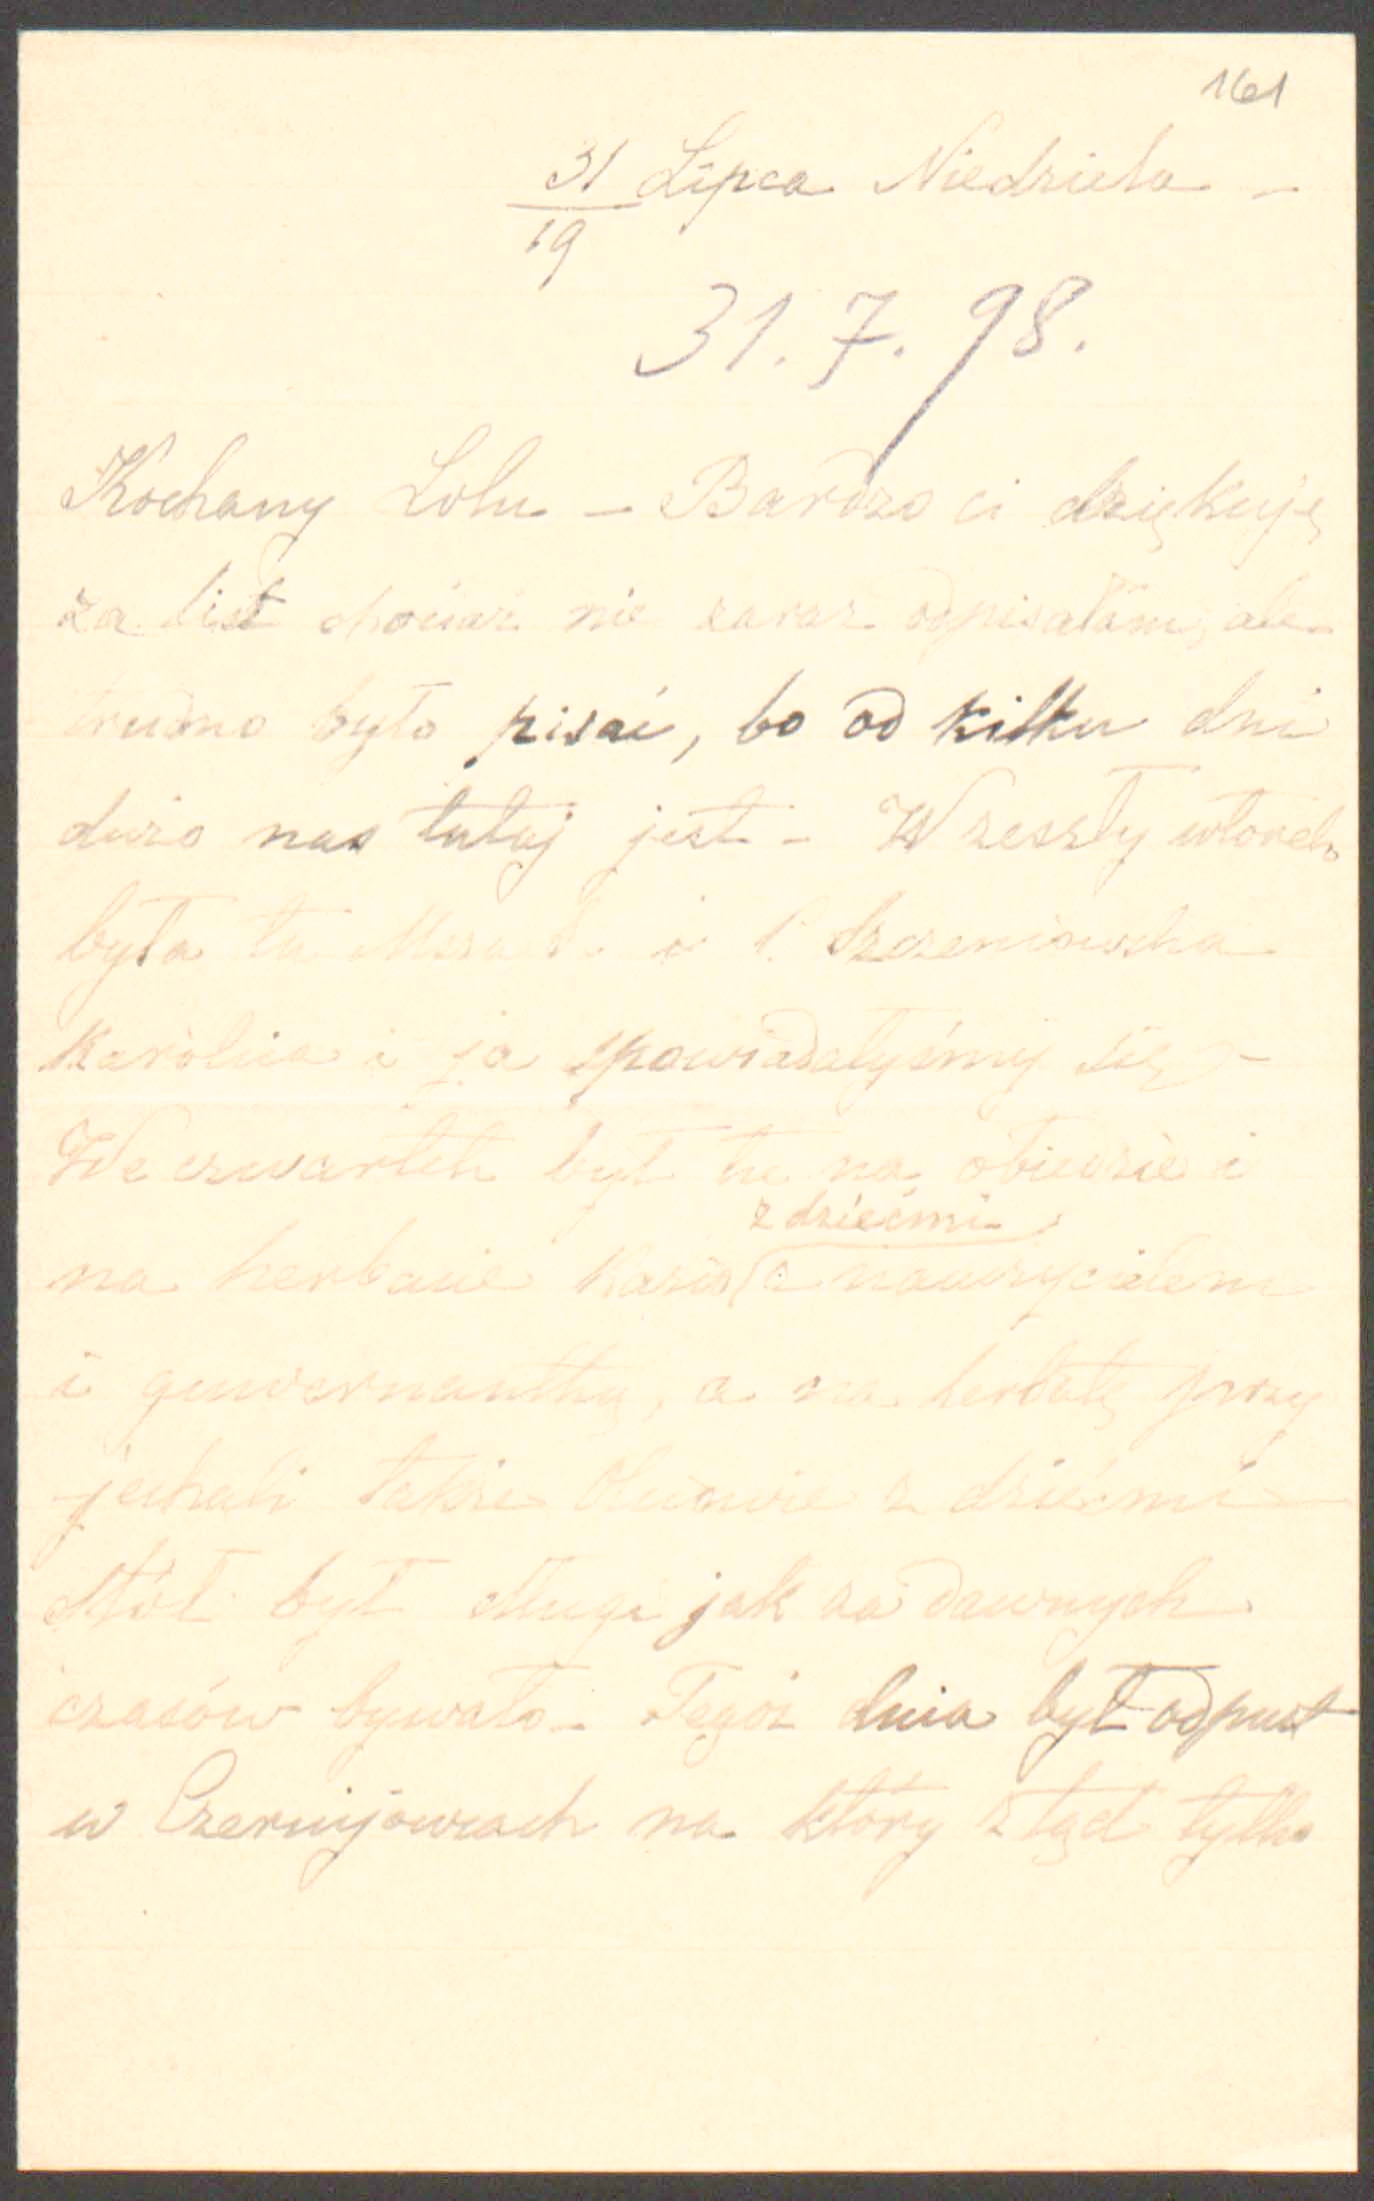 161
31/19 Lipca Niedziela -
31. 7. 98.
Kochany Lolu - Bardzo ci dziękuję
za list chociaż nie zaraz odpisałam, ale
trudno było pisać, bo od kilku dni
dużo nas tutaj jest - W zeszły wtorek
była tu Msza Ś. i P. Szczeniowska
Karolcia i ja spowiadałyśmy się -
We czwartek był tu na obiedzie i
z dziećmi
na herbacie Kazio z nauczycielem
i guwernantką, a na herbatę przy
jechali także z dziećmi -
Stół był długi jak za dawnych
czasów bywało - Tegoż dnia był odpust
w Czernijowcach na który ztąd tylko